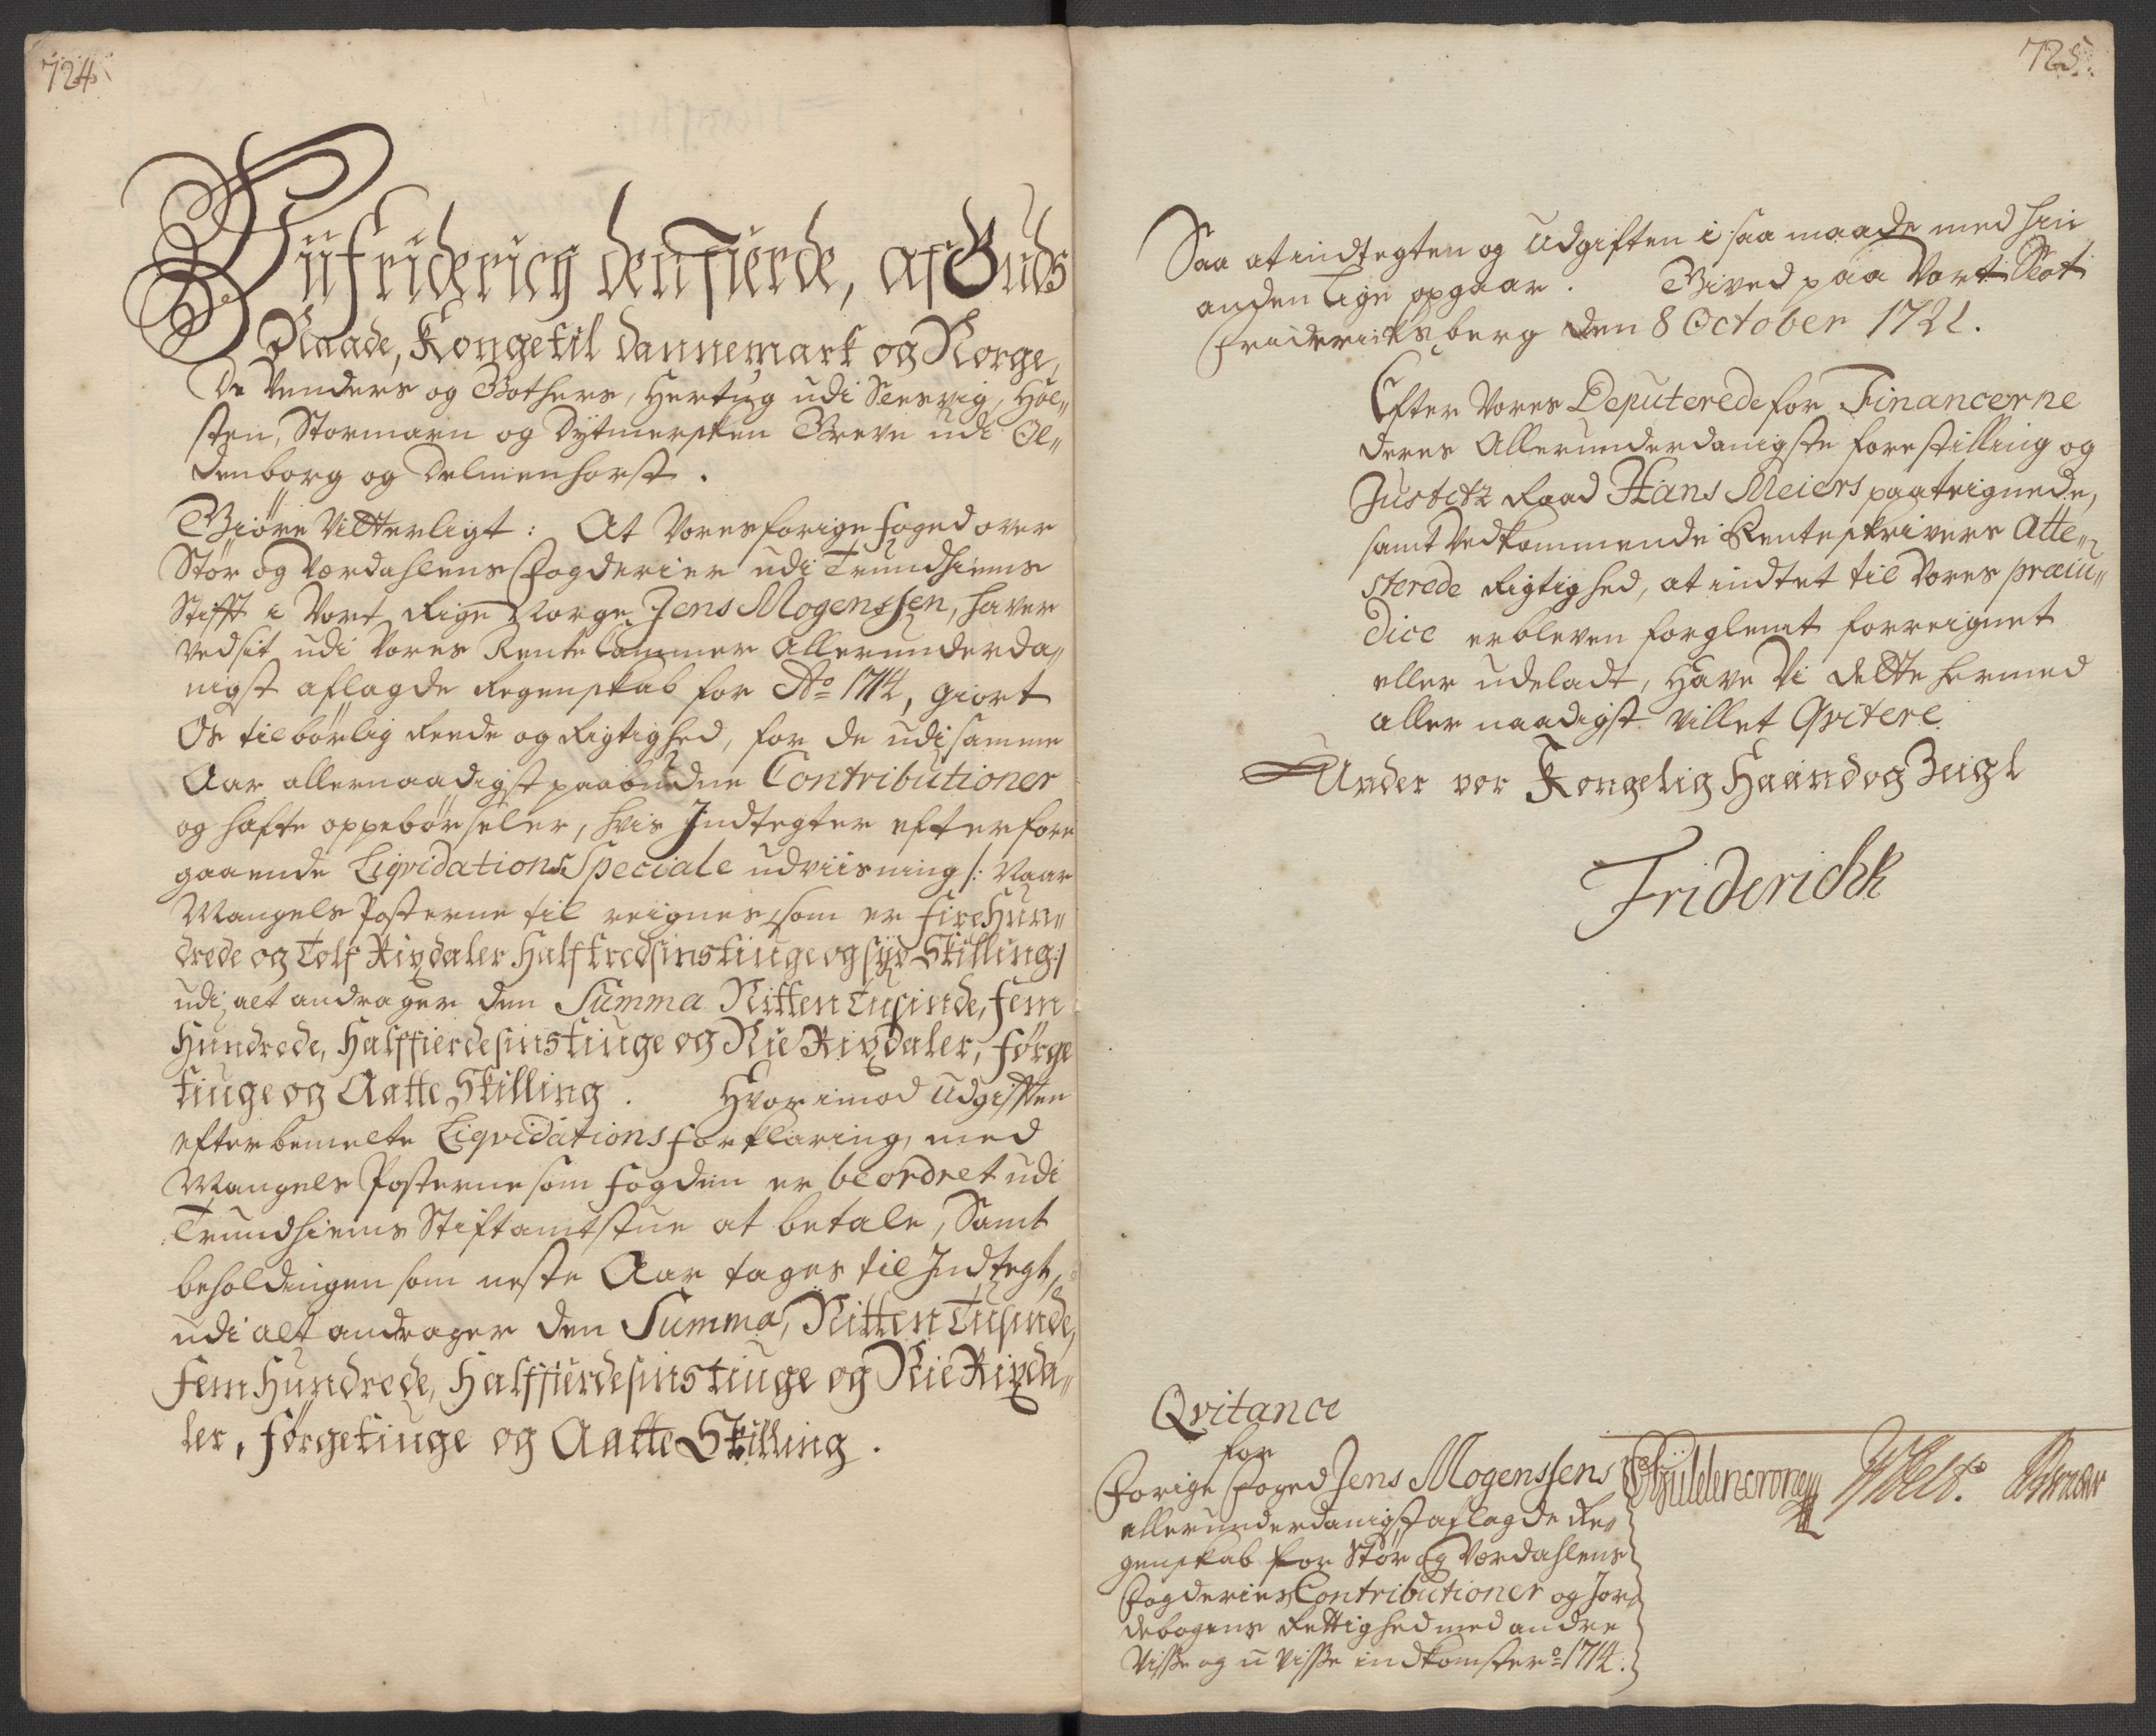 724
Wii Friderich den Fierde, af Guds
Naade, Konge til Dannemark og Norge,
De Venders og Gothers, Hertug udi Slesvig, Hol„
sten, Stormarn og Dytmersken Greve udi Ol„
denborg og Delmenhorst.
Giöre Vitterligt: At Vores forige foged over
Stør og Værdahlens Fogderier udi Trundhiems
Stifft i Vort Rige Norge, Jens Mogenssen, haver
ved sit udi Vores Rente Cammer Allerunderda„
nigst aflagde Regenskab for Ao 1714, giort
Os tilbörlig Reede og Rigtighed, for de udi samme
Aar allernaadigst paabudne Contributioner
og hafte oppebörseler, hvis Indtegter efter fore
gaaende Liqvidations Speciale udviisning /: Naar
Mangels Posterne til reignes, som er Fire Hun„
drede og Tolf Rixdaler Halftredsinstiuge og syv Skilling :/
udi alt andrager den Summa Nitten Tusinde, fem
Hundrede, Halffierdesinstiuge og Nie Rixdaler, förge
tiuge og Aatte Skilling. Hvorimod Udgifften
efter bemelte Liqvidations forklaring, med
Mangels Posterne som fogden er beordret udi
Trundhiems Stiftamtstue at betale, Samt
beholdingen som neste Aar tages til Indtegt,
udi alt andrager den Summa, Nitten Tusinde,
Fem Hundrede, Halffierdesinstiuge og Nie Rixda„
ler, förgetiuge og Aatte Skilling.
725.
Saa at indtegten og Udgiften i saa maade med hin
anden lige opgaar. Gived paa Vort Slot
Friderichsberg den 8 October 1721.
Efter Vores Deputerede for Financerne
deres Allerunderdanigste forestilling og
Justitz Raad Hans Meiers paateignede,
samt Vedkommende Renteskrivers Atte„
sterede Rigtighed, at indtet til Vores præiu„
dice er bleven forglemt forreignet
eller udeladt, Have Vi dette hermed
aller naadigst villet Qvitere
Under vor Kongelig Haand og Zeigl
Friderichk
Qvitance
for
Forige Foged Jens Mogenssens
allerunderdanigst aflagde Re„
genskab for Stør og Værdahlens
Fogderiers Contributioner og Jor„
debogens Rettighed med andre
Visse og u Visse indkomster o 1714.
Güldencrone